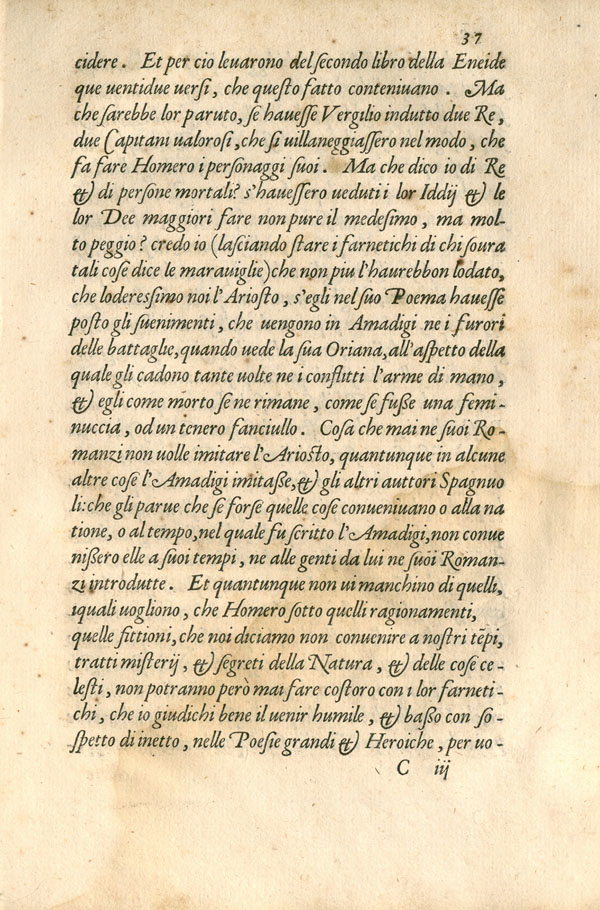 37
cidere. Et per cio leuarono del secondo libro della Eneide
que uentidue uersi, che questo fatto conteniuano. Ma
che sarebbe lor paruto, se hauesse Vergilio indutto due Re,
due Capitani ualorosi, che si uillaneggiassero nel modo, che
fa fare Homero i personaggi suoi. Ma che dico io di Re
& di persone mortali? s'hauessero ueduti i lor Iddij & le
lor Dee maggiori fare non pure il medesimo, ma mol-
to peggio? credo io (lasciando stare i farnetichi di chi soura
tali cose dice le marauiglie) che non piu l'haurebbon lodato,
che loderessimo noi l'Ariosto, s'egli nel suo Poema hauesse
posto gli suenimenti, che uengono in Amadigi ne i furori
delle battaglie, quando uede la sua Oriana, all'aspetto della
quale gli cadono tante uolte ne i conflitti l'arme di mano,
& egli come morto se ne rimane, come se fuße una femi-
nuccia, od un tenero fanciullo. Cosa che mai ne suoi Ro-
manzi non uolle imitare l'Ariosto, quantunque in alcune
altre cose l'Amadigi imitaße, & gli altri auttori Spagnuo
li: che gli parue che se forse quelle cose conueniuano o alla na
tione, o al tempo, nel quale fu scritto l'Amadigi, non conue
nißero elle a suoi tempi, ne alle genti da lui ne suoi Roman-
zi introdutte. Et quantunque non ui manchino di quelli,
iquali uogliono, che Homero sotto quelli ragionamenti,
quelle fittioni, che noi diciamo non conuenire a nostri tēpi,
tratti misterij, & segreti della Natura, & delle cose ce-
lesti, non potranno però mai fare costoro con i lor farneti-
chi, che io giudichi bene il uenir humile, & baßo con so-
spetto di inetto, nelle Poesie grandi & Heroiche, per uo-
C iij